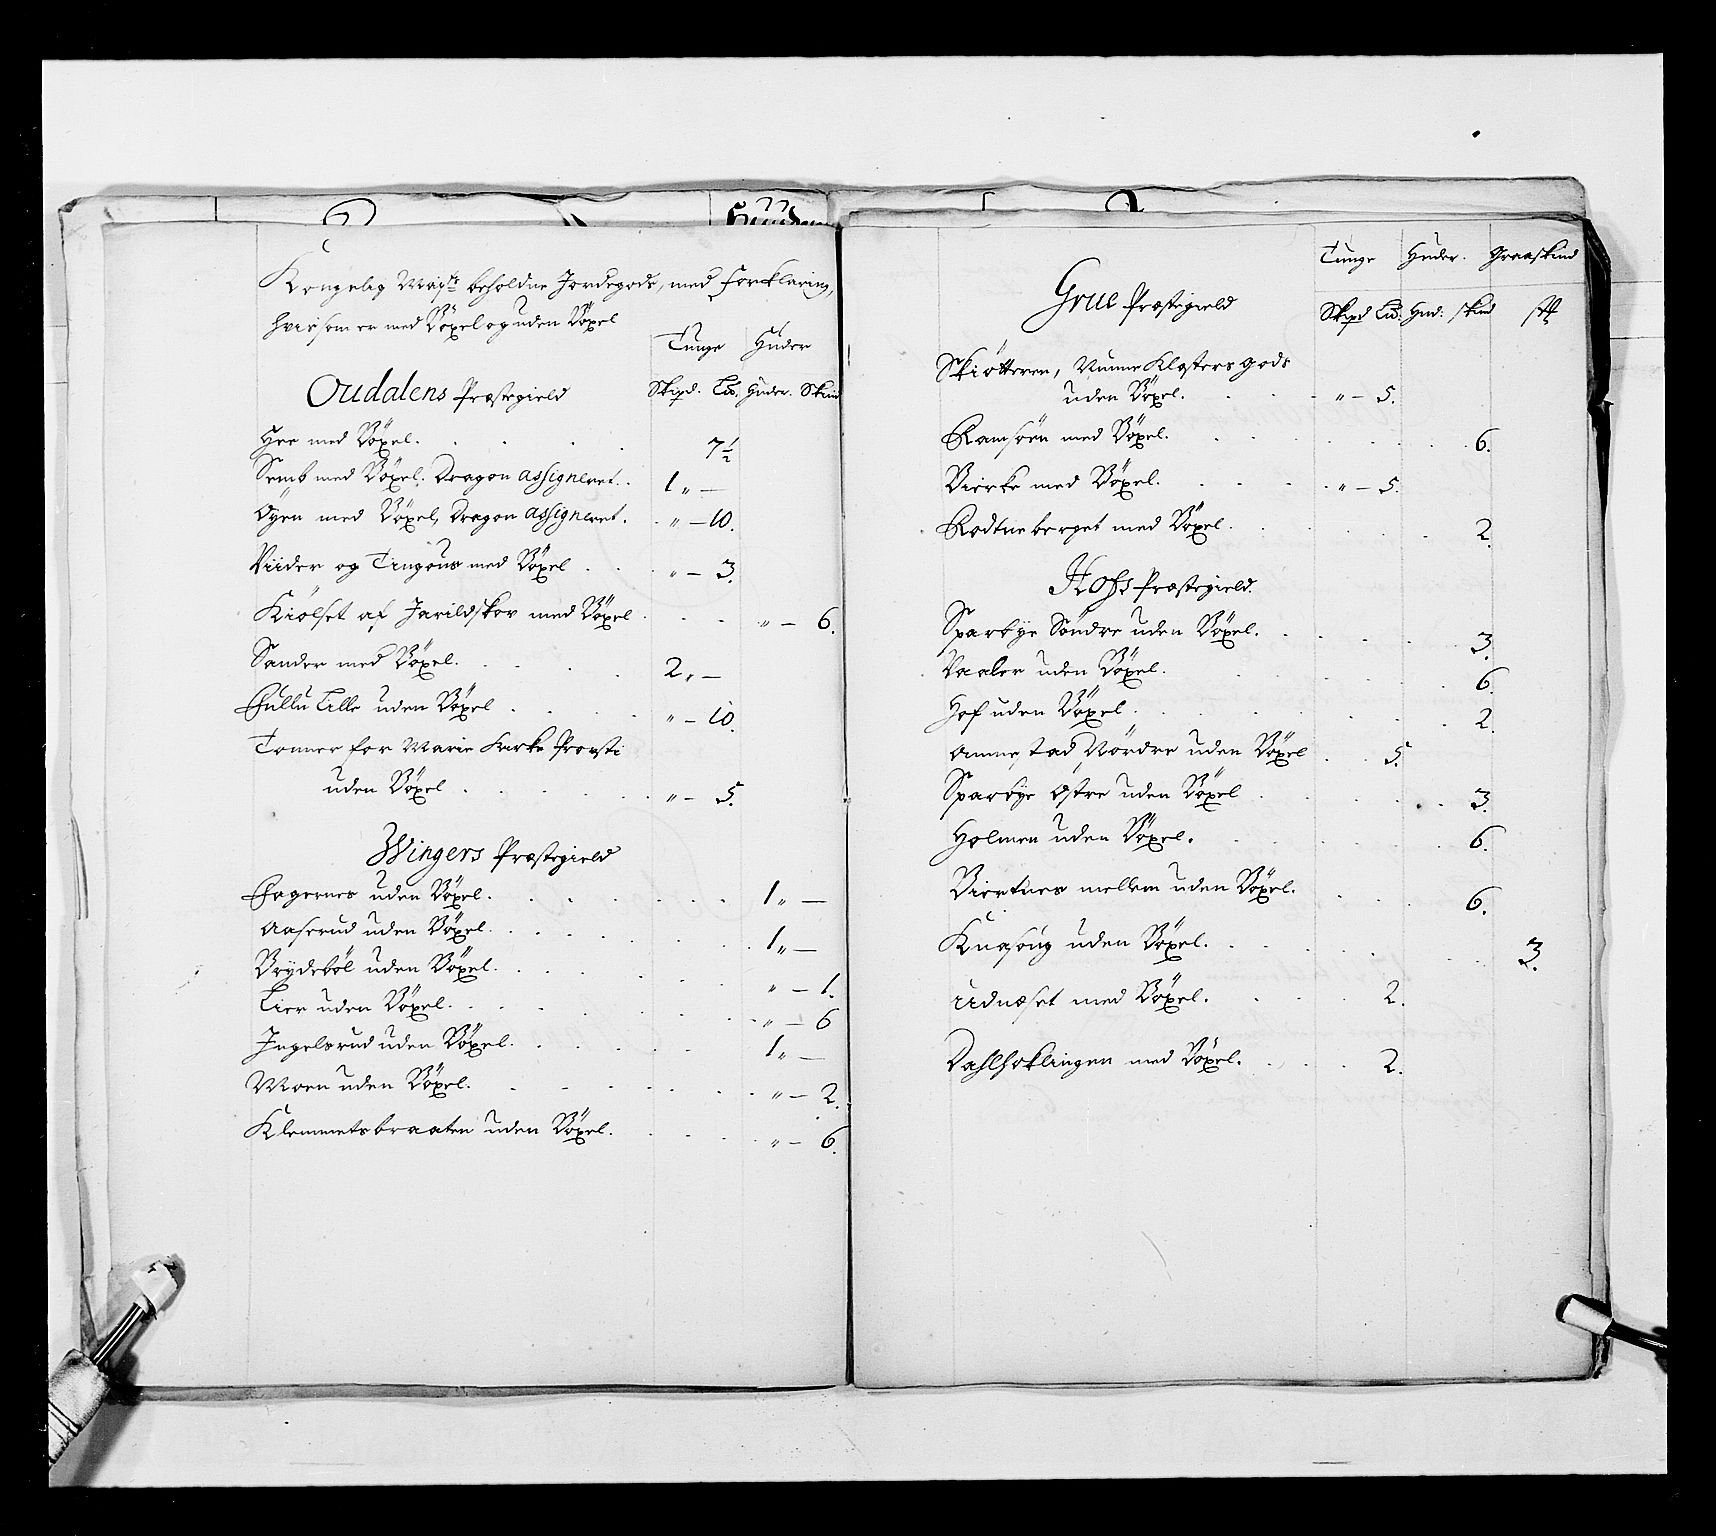 Kongelig Mayts beholdne Jordegods, med forklaring,
hvis som er med Böxel og uden Böxel
Tunge Huder
Oudalens Præstegield Skipd: Lb. Huder. Skind
Hee med Böxel. 7½
Semb med Böxel. Dragon assigneret. 1 „ —
Öyen med Böxel, Dragon assigneret. „ — 10.
Viider og Tingöus med Böxel „ — 3.
Kiölset af Jarildskov med Böxel „ — 6.
Sander med Böxel. 2 „ —
Hullu Lille uden Böxel „ — 10.
Tomter for Marie Kirke Provsti
uden Böxel „ — 5.
Wingers Præstegield
Hagernes uden Böxel. 1 „ —
Aaserud uden Böxel. 1 „ —
Brydeböl uden Böxel. „ — 1.
Lier uden Böxel. „ — 6
Ingelsrud uden Böxel. 1 „ —
Moen uden Böxel. „ — 2.
Klemmetsbraaten uden Böxel. „ — 6.
Tunge Huder. Graaskind
Grue Præstegield Skipd Lb: Hud: skind stk
Skiötteren, Nunne Klosters gods
uden Böxel. „ — 5.
Ramsöen med Böxel. 6.
Bierke med Böxel. „ — 5.
Rodtneberget med Böxel. 2.
Hofs Præstegield.
Sparbye Söndre uden Böxel. 3.
Vaaler uden Böxel. 6.
Hof uden Böxel. 2.
Amnestad Nördre uden Böxel 5.
Sparbye Östre uden Böxel 3.
Holmen uden Böxel. 6.
Biertnes mellem uden Böxel. 6.
Knasöug uden Böxel. 3.
Udnæset med Böxel. 2.
Dahlhoklingen med Böxel. 2.